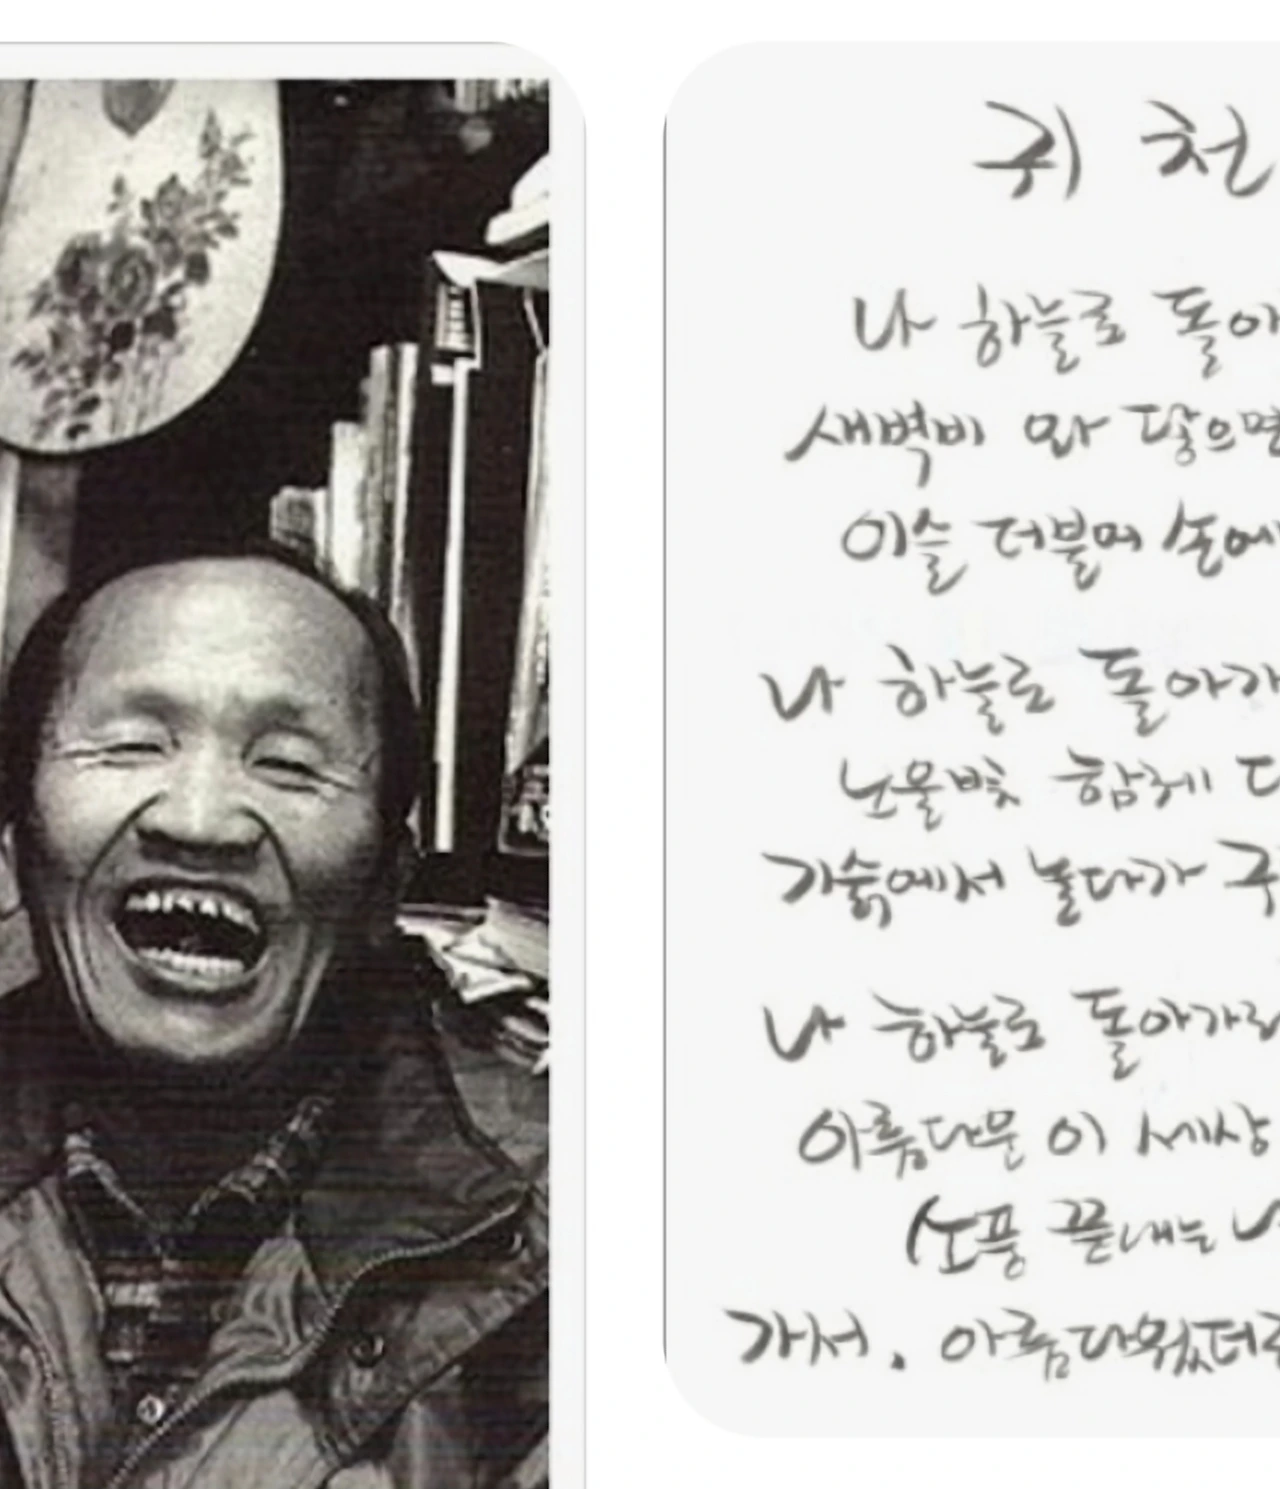 귀 천
나 하늘로 돌아
새벽비 와 닿으면
이슬 더불어 손에
나 하늘로 돌아가
노을빛 함께
기슭에서 놀다가 구
나 하늘로 돌아가리
아름다운 이 세상
소풍 끝내는
가서, 아름다웠더라